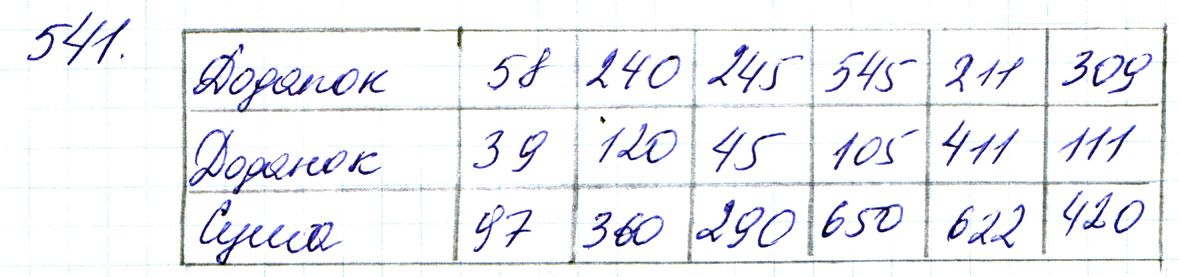 541.
Доданок 58 240 245 545 211 309
Доданок 39 120 45 105 411 111
Сума 97 360 290 650 622 420